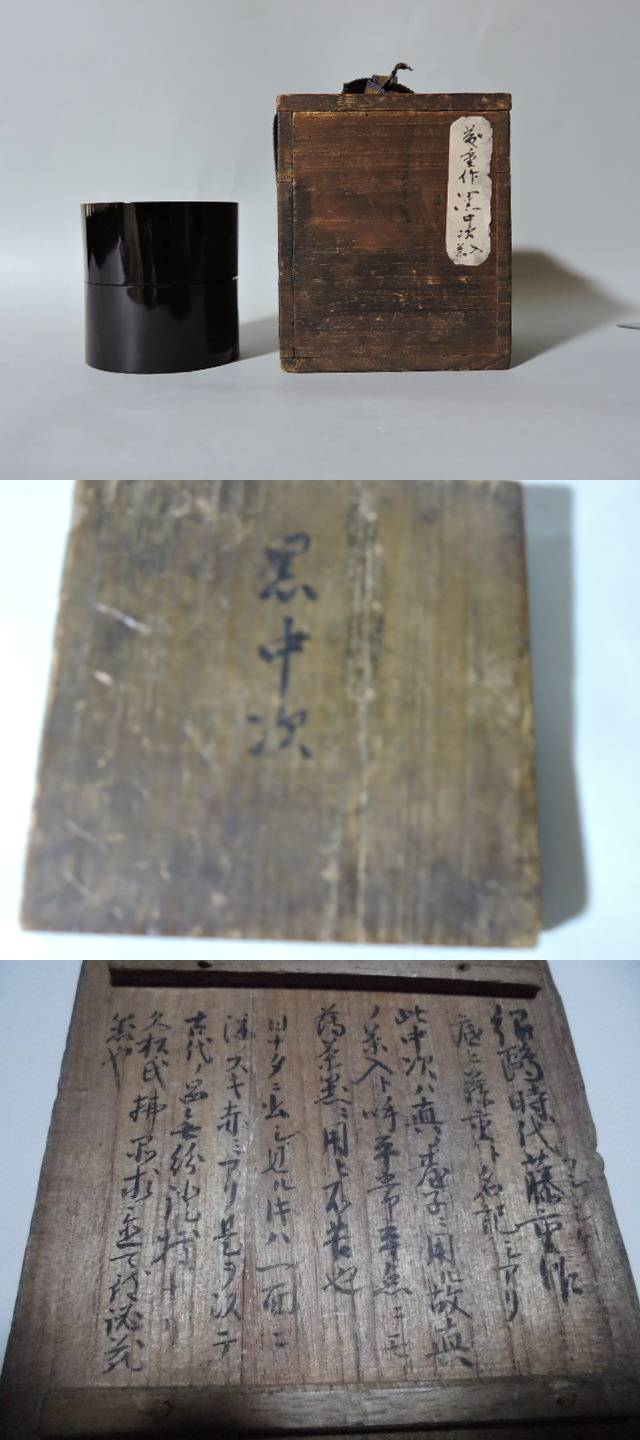 藤重作 黒中次
茶入
黒中次
紹鴎時代藤重作
底ニ藤重ト名記シアリ
此中次ハ真ノ台子ニ用ル故真
ノ茶入ト呼平常平点ニモ
薄茶器ニ用ヒ不苦也
日ナタニ出シ見ル時ハ一面ニ
漆スキ赤ミアリ是ヲ以テ
古代ノ品無紛
久松氏拂